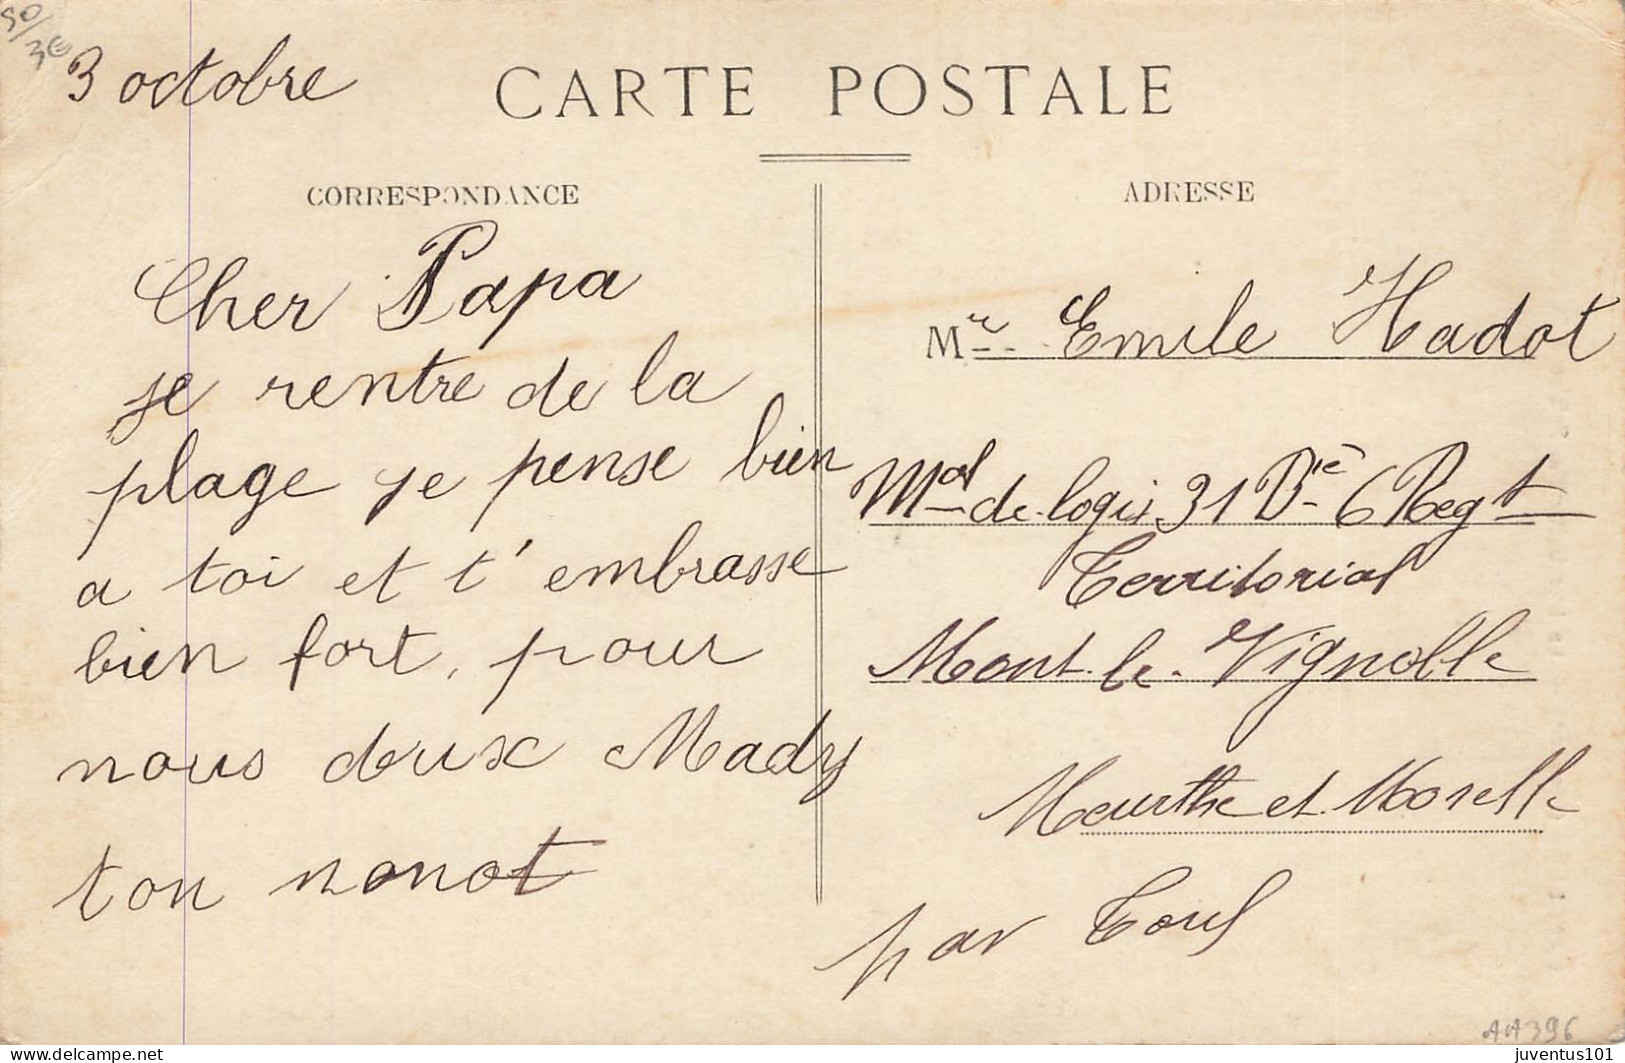 50/3€
3 octobre
CARTE POSTALE
CORRESPONDANCE
Cher Papa
je rentre de la
plage je pense bien
a toi et t'embrasse
bien fort, pour
nous deux Mady
ton nonot
ADRESSE
Mr Emile Hadot
Mal de logis 31 Bie 6 Regt
Territorial
Mont-le-Vignolle
Meurthe et Moselle
par Toul
AA396
juventus101